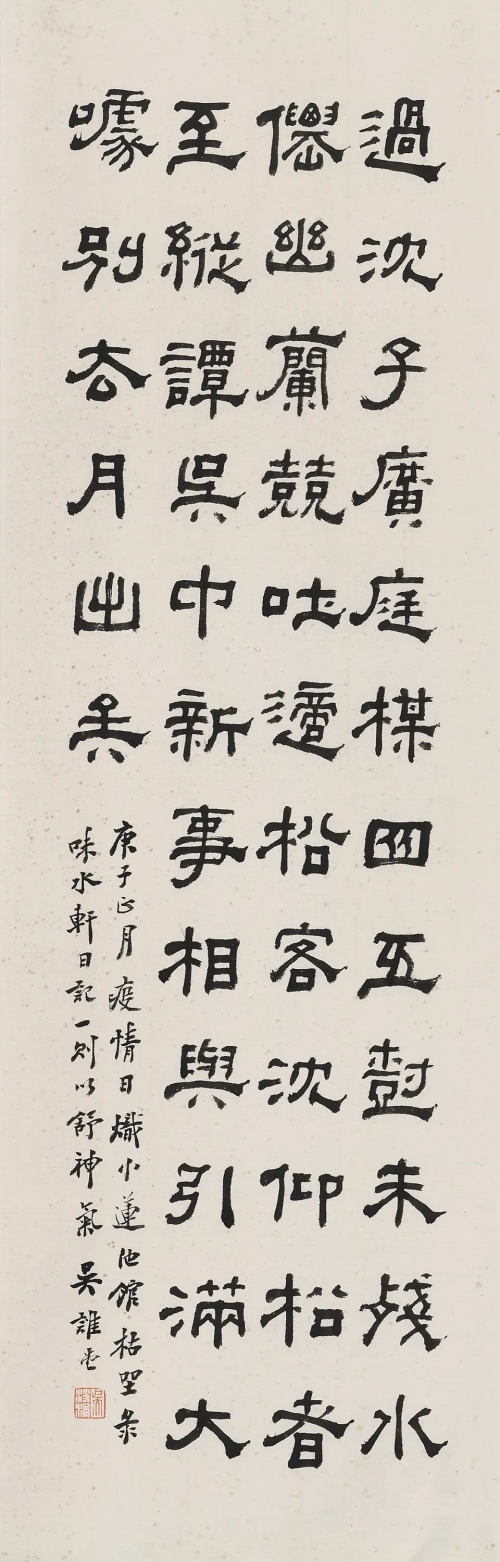 過沈子廣庭楳四五尌未殘水
僊幽蘭競吐適松客沈仰松者
至縱譚吳中新事相與引滿大
噱別去月出矣
庚子正月疫情日熾小蓮池館枯坐录
味水軒日記一則以舒神氣 吳誰堂